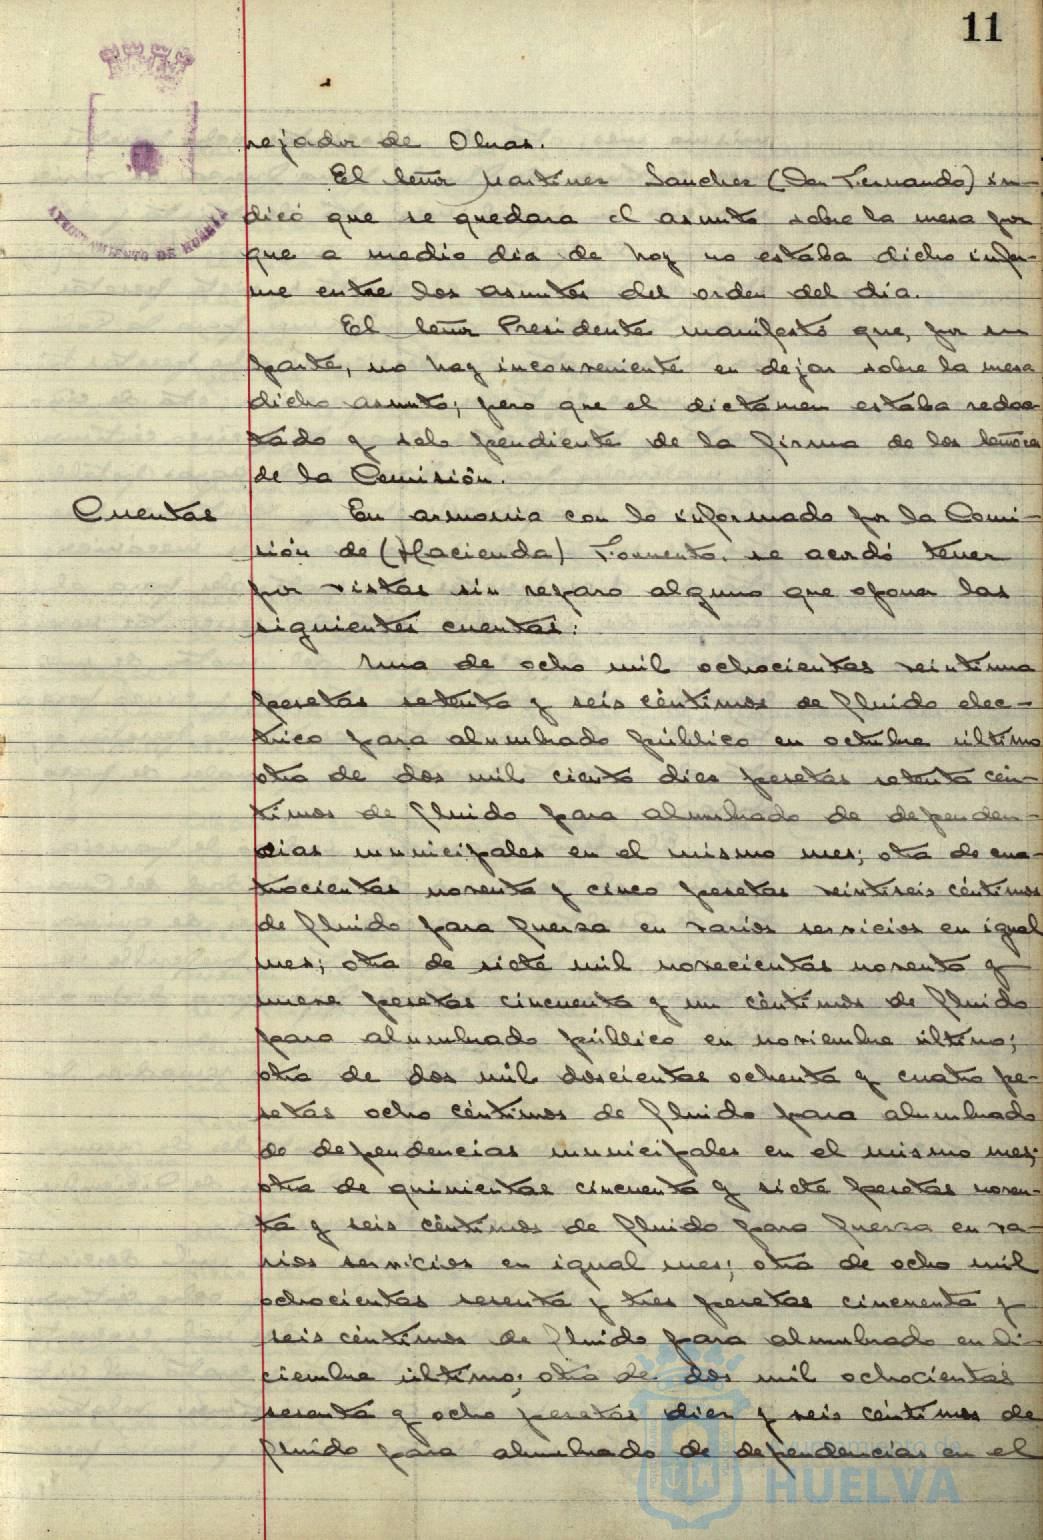 11
AYUNTAMIENTO DE HUELVA
nejador de Obras.
El señor Martinez Sanchez (Don Fernando) in-
dicó que se quedara el asunto sobre la mesa por
que a medio dia de hoy no estaba dicho infor-
me entre los asuntos del orden del dia.
El señor Presidente manifestó que, por su
parte, no hay inconveniente en dejar sobre la mesa
dicho asunto; pero que el dictamen estaba redac-
tado y solo pendiente de la firma de los señores
de la Comisión.
Cuentas
En armonia con lo informado por la Comi-
sión de (Hacienda) Fomento. se acordó tener
por vistas sin reparo alguno que oponer las
siguientes cuentas:
Una de ocho mil ochocientas veintiuna
pesetas setenta y seis céntimos de fluido elec-
trico para alumbrado público en octubre último
otra de dos mil ciento diez pesetas setenta cén-
timos de fluido para alumbrado de dependen-
cias municipales en el mismo mes; otra de cua-
trocientas noventa y cinco pesetas veintiseis céntimos
de fluido para fuerza en varios servicios en igual
mes; otra de siete mil novecientas noventa y
nueve pesetas cincuenta y un céntimos de fluido
para alumbrado público en noviembre último;
otra de dos mil doscientas ochenta y cuatro pe-
setas ocho céntimos de fluido para alumbrado
de dependencias municipales en el mismo mes;
otra de quinientas cincuenta y siete pesetas noven-
ta y seis céntimos de fluido para fuerza en va-
rios servicios en igual mes; otra de ocho mil
ochocientas sesenta y tres pesetas cincuenta y
seis céntimos de fluido para alumbrado en di-
ciembre último; otra de dos mil ochocientas
sesenta y ocho pesetas diez y seis céntimos de
fluido para alumbrado de dependencias en el
Ayuntamiento de
HUELVA